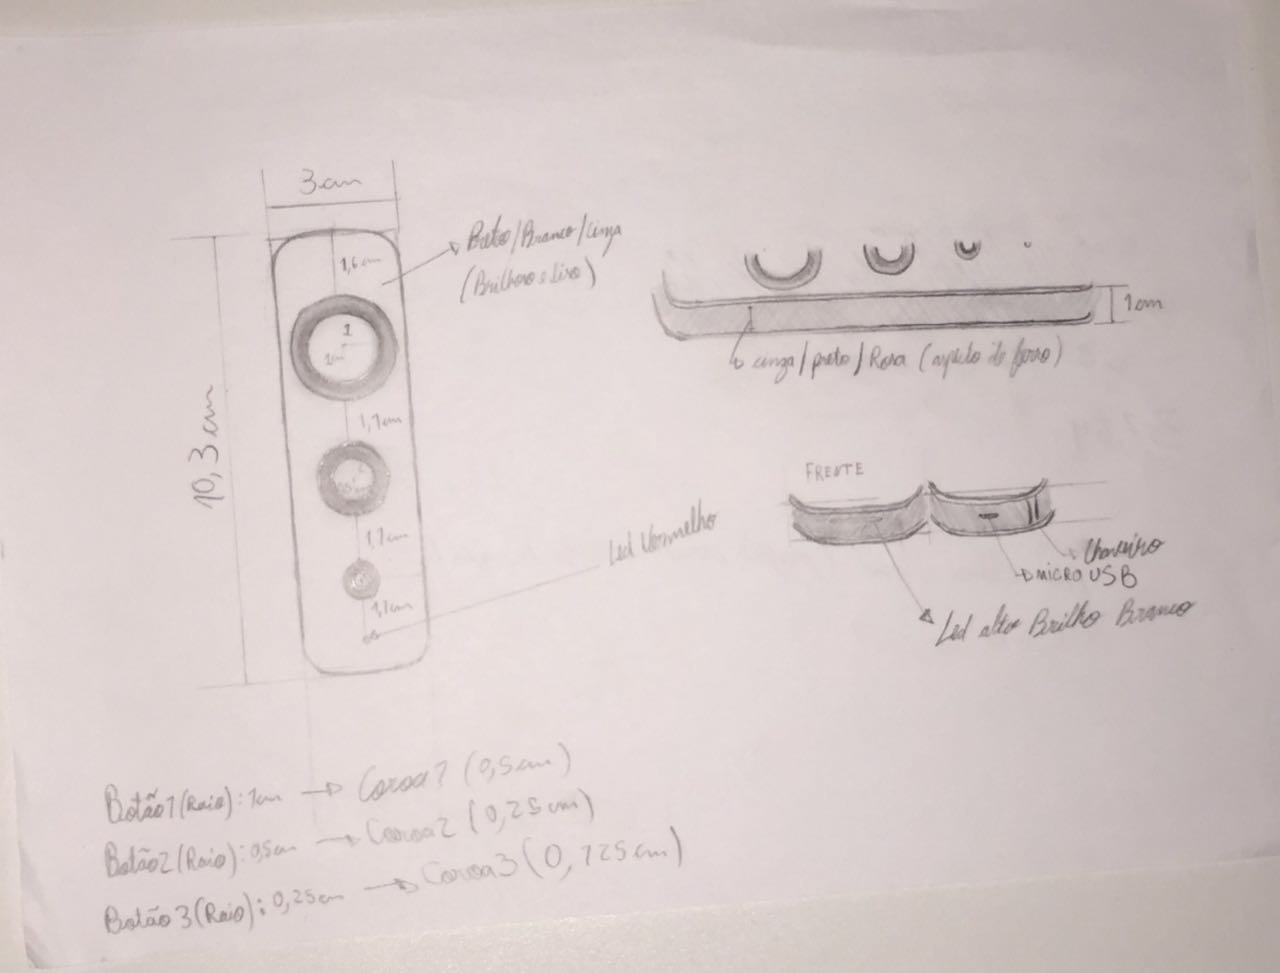 3cm
1,6cm
Preto/Branco/Cinza
(Brilhoso e Liso)
1
1cm
1,1cm
1,1cm
1,1cm
10,3cm
Led Vermelho
1cm
cinza/preto/Rosa (aspecto de ferro)
FRENTE
Chaveiro
MICRO USB
Led alto Brilho Branco
Botão 1 (Raio): 1cm → Coroa 1 (0,5cm)
Botão 2 (Raio): 0,5cm → Coroa 2 (0,25cm)
Botão 3 (Raio): 0,25cm → Coroa 3 (0,125cm)